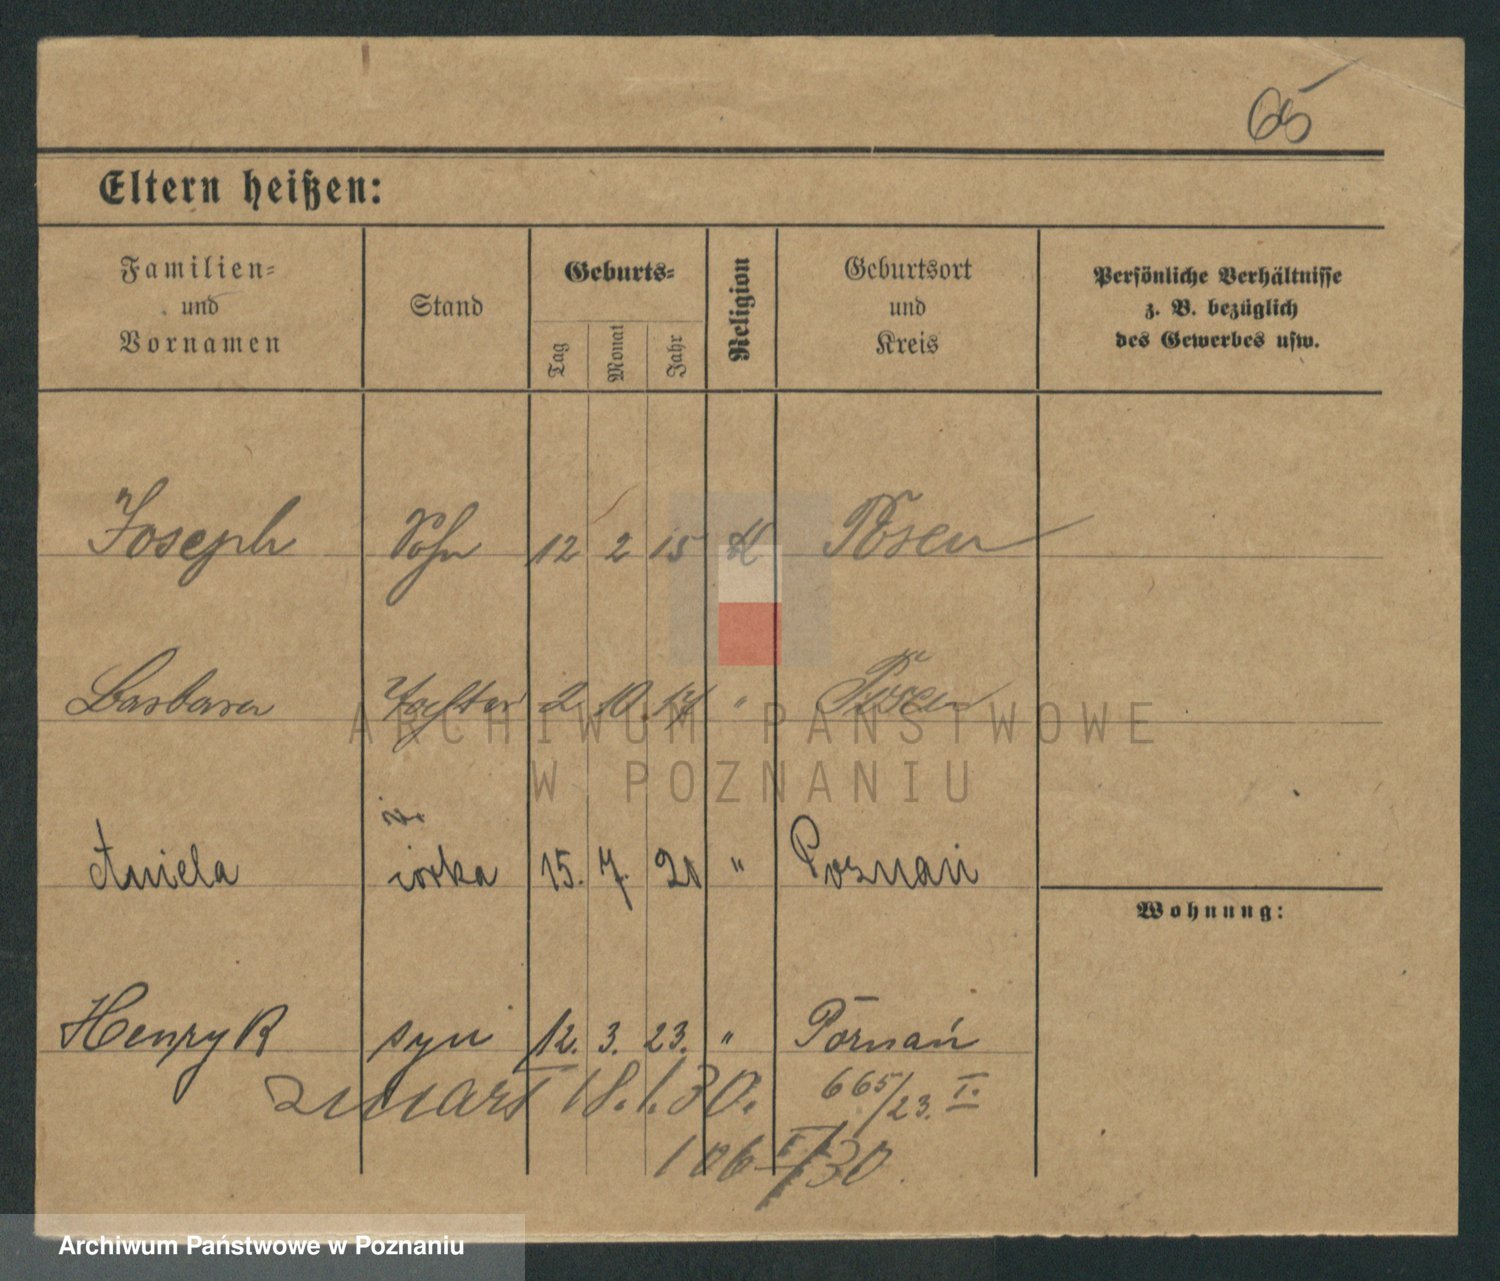 65
Eltern heißen:
Familien- und Vornamen Stand Geburts- Tag Monat Jahr Religion Geburtsort und Kreis Persönliche Verhältnisse z. B. bezüglich des Gewerbes usw.
Joseph Sohn 12 2 15 K Posen
Barbara Tochter 2. 10. 17 " Posen
ARCHIWUM PAŃSTWOWE
W POZNANIU
Aniela córka 15. 7. 20 " Poznań
Wohnung:
Henryk syn 12. 3. 23. " Poznań
zmarł 18.1.30. 665/23. I.
106 I/30.
Archiwum Państwowe w Poznaniu